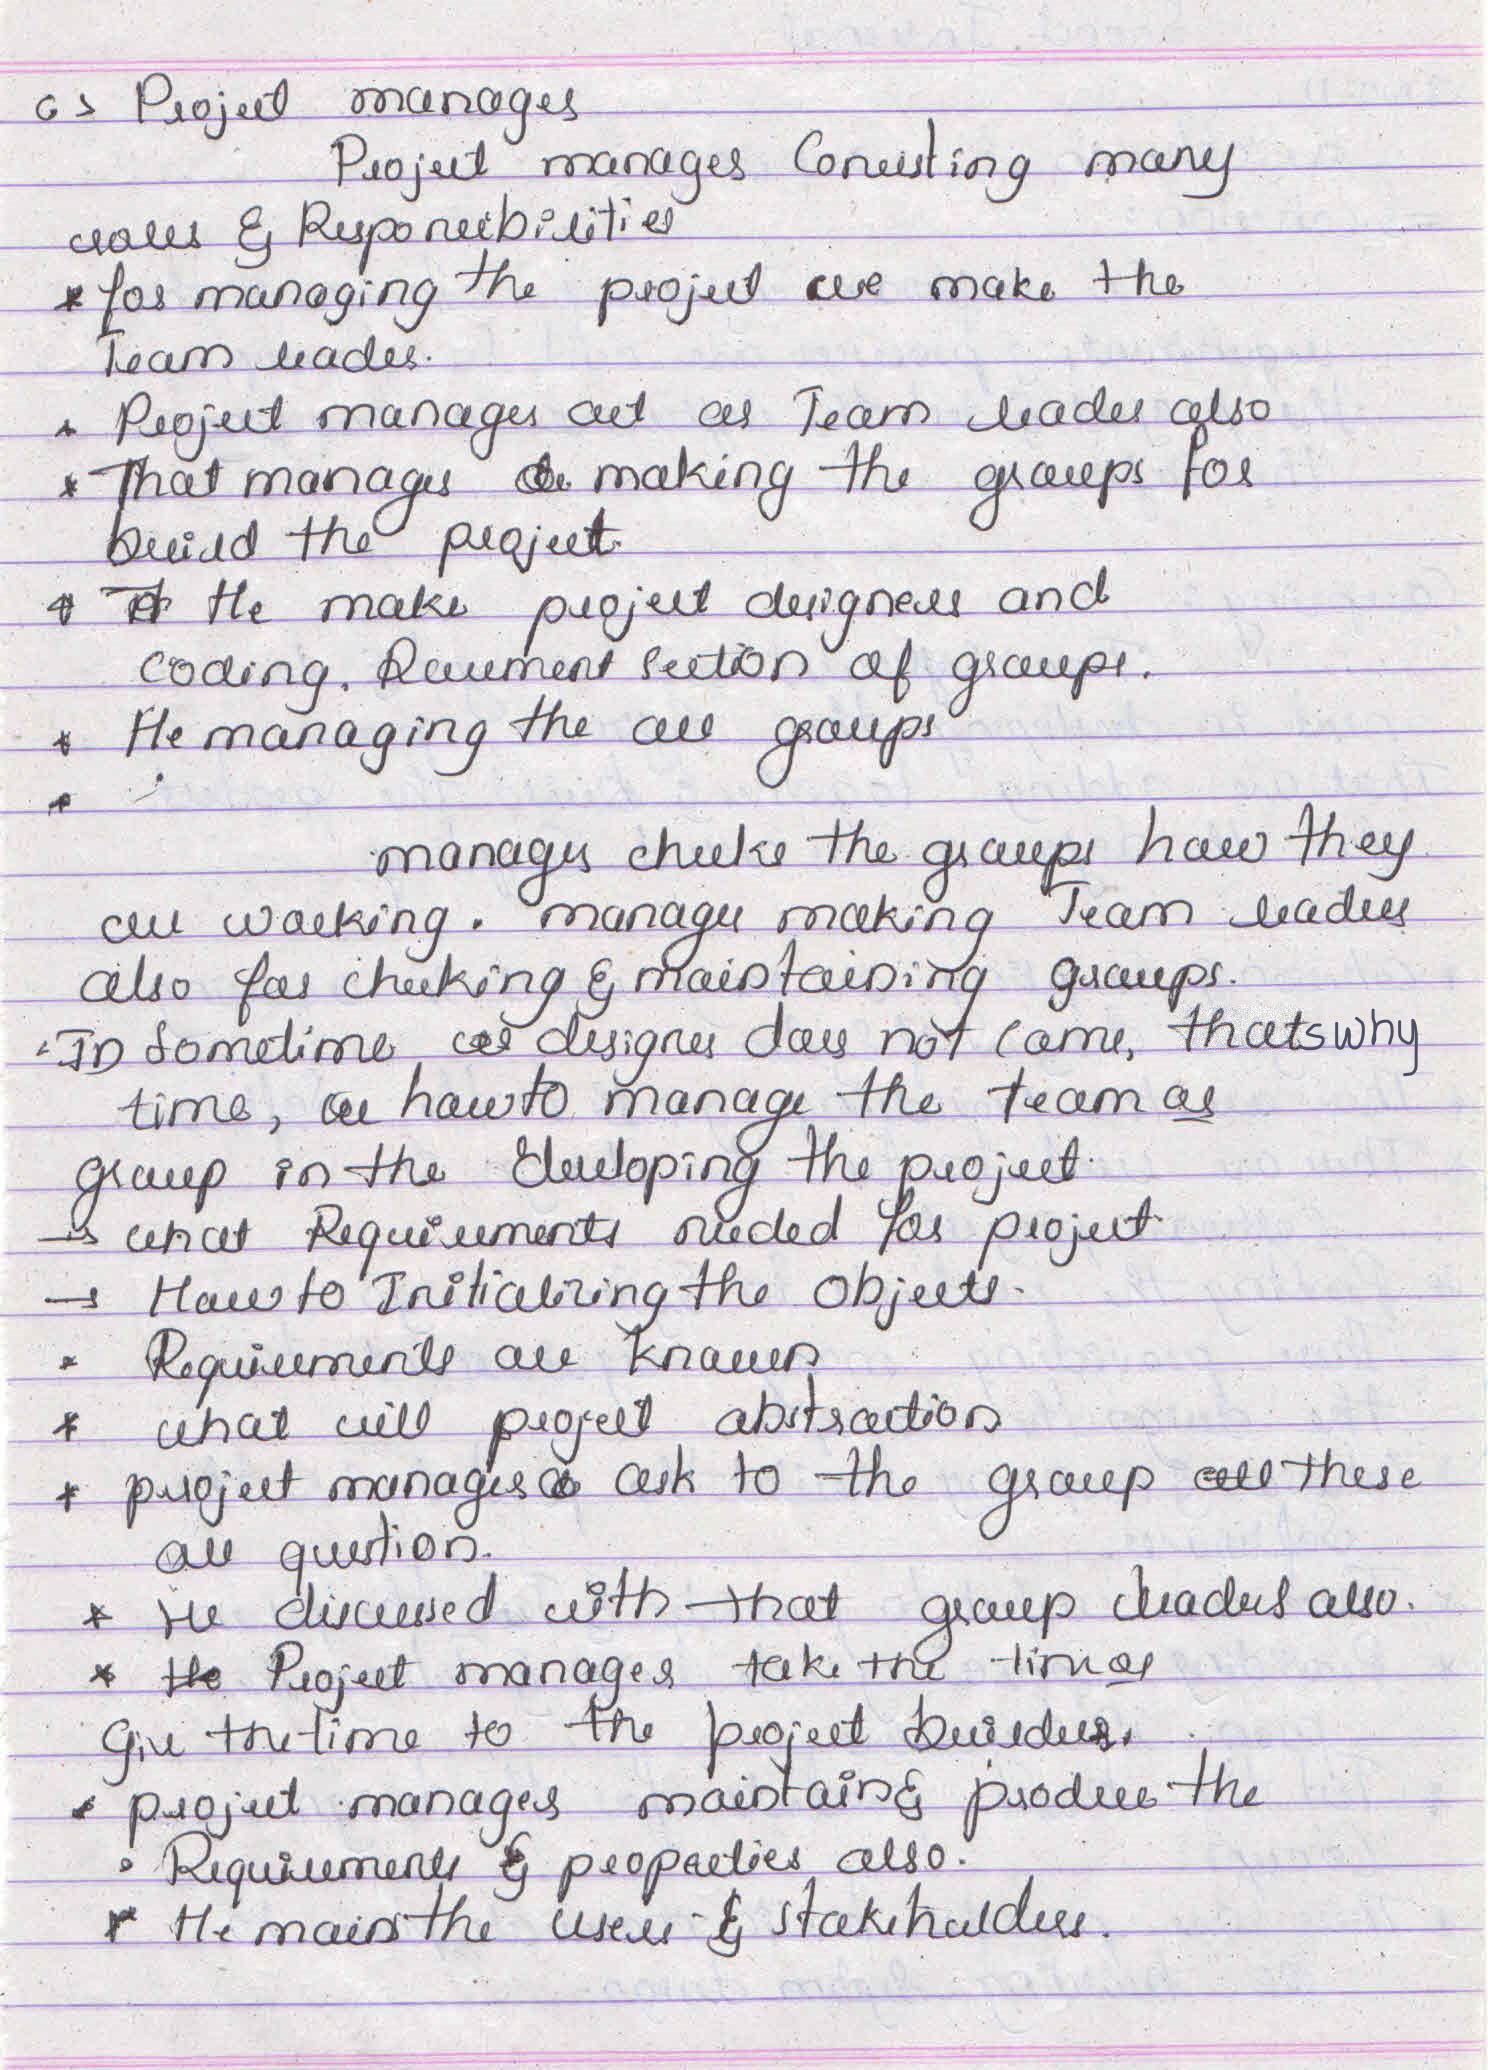 6> Project manager
Project manager Consisting many
roles & Responsibilities
* for managing the project we make the
Team leader.
* Project manager act as Team leader also
* That manager making the groups for
build the project.
* He make project designers and
coding. Document section of groups.
* He managing the all groups
*
manager checks the groups how they
are working. manager making Team leaders
also for checking & maintaining groups.
In Sometime designer does not come, thats why
time, how to manage the team as
group in the developing the project.
→ what Requirements needed for project.
→ How to Initializing the objects.
* Requirements are known
* what will project abstraction
* project manager ask to the group these
all question.
* He discussed with that group leaders also.
* He Project manager take the time as
Give the time to the project builders.
* project manager maintain & produce the
• Requirements & properties also.
* He main the users & stakeholders.